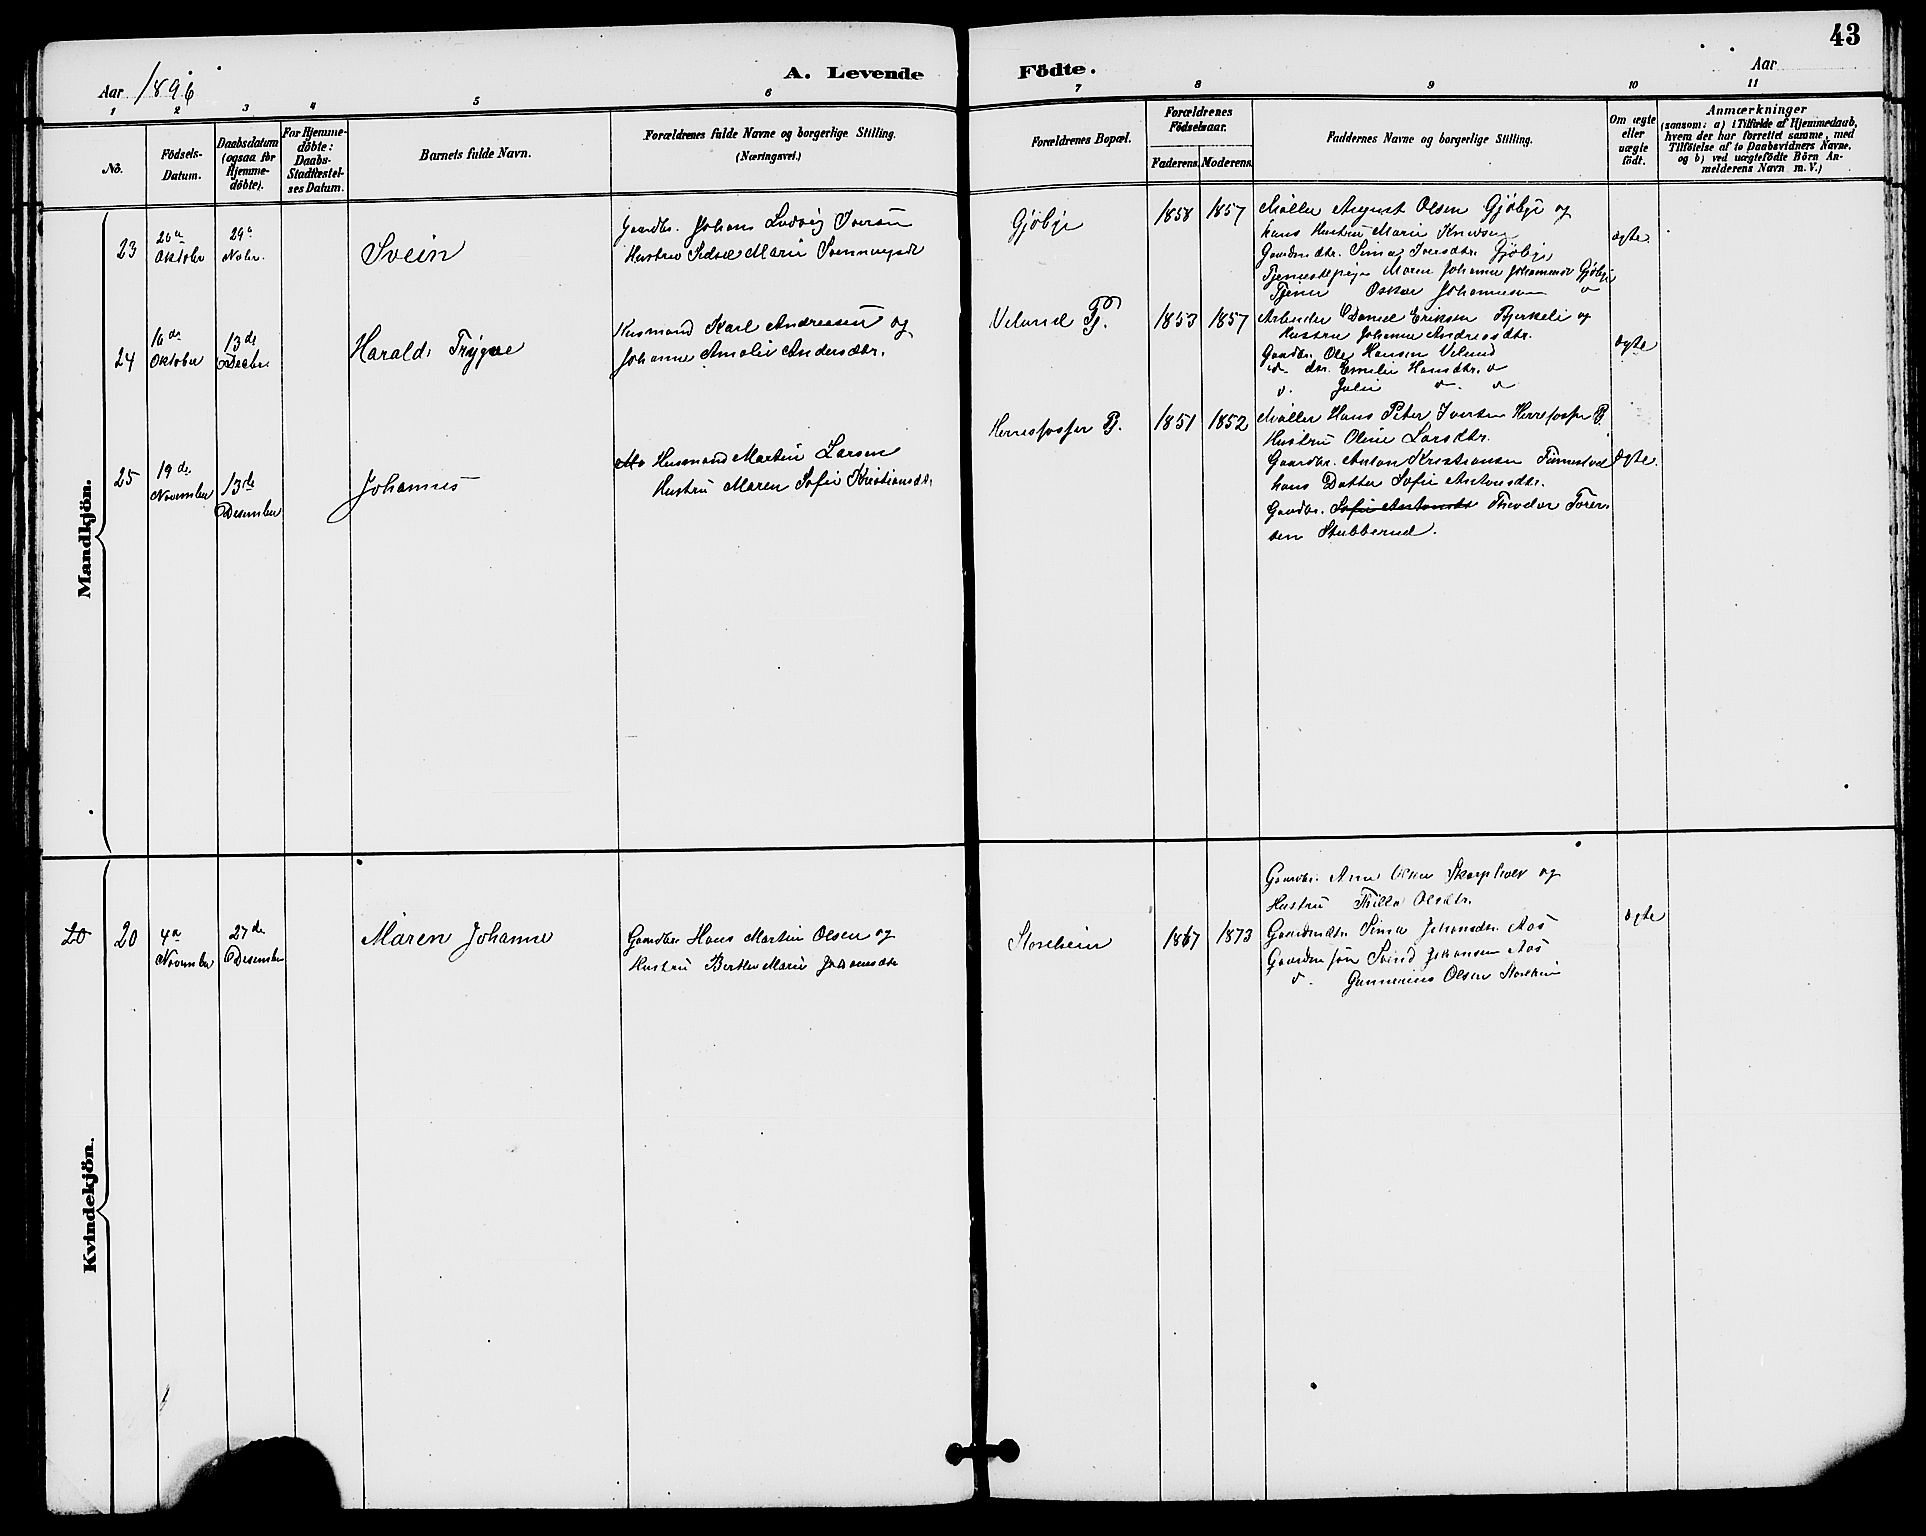 43
Aar 1896
A. Levende Födte.
Aar
1 2 3 4 5 6 7 8 9 10 11
No.
Födsels-
Datum.
Daabsdatum
(ogsaa for
Hjemme-
döbte).
For Hjemme-
döbte:
Daabs-
Stadfæstel-
ses Datum.
Barnets fulde Navn.
Forældrenes fulde Navne og borgerlige Stilling.
(Næringsvei.)
Forældrenes Bopæl.
Forældrenes
Födselsaar.
Faderens. Moderens.
Faddernes Navne og borgerlige Stilling.
Om ægte
eller
uægte
födt.
Anmærkninger
(saasom: a) i Tilfælde af Hjemmedaab,
hvem der har forrettet samme, med
Tilföielse af to Daabsvidners Navne,
og b) ved uægtefödte Börn An-
melderens Navn m. V.)
Mandkjön.
23
Oktober
29
Nobr.
Svein
Gaardbr. Johan Ludvig Iversen
Hustru Marie
Gjöbye
1858 1857
Möller August Olsen Gjöbye og
hans Hustru Marie Knudsen
Gaardmdtr. Sina Iversdtr. Gjöbye
Tjenestepige Maren Johanne Gjöbye
Tjener Oskar Johannesen
ægte
24
16de
Oktober
13de
Decbr.
Harald Trygve
Husmand Karl Andreasen og
Johanne Amalie Andersdtr.
Velund
1853 1857
Arbeider Daniel Eriksen Bjerkeli og
Hustru Johanne Andreasdtr.
Gaardbr. Ole Hansen Velund
dtr. Emilie Hansdtr.
Julie
ægte
25
19de
November
13de
Desember
Johannes
Husmand Martin Larsen
Hustru Maren Sofie Kristiansdtr.
Herrefosser
1851 1852
Möller Hans Peter Iversen Herrefosser
Hustru Oline Larsdtr.
Gaardbr. Anton Kristiansen
hans Datter Sofie Antonsdtr.
Gaardbr. Sofie Antonsdtr Theodor Torer-
sen Stubberud.
ægte.
Kvindekjön.
20 20
4de
November
27de
Desember
Maren Johanne
Gaardbr. Hans Martin Olsen og
Hustru Berthe Marie Johansdtr
Storeheim
1867 1873
Gaardbr. Olsen Skarpholt og
Hustru Olsdtr.
Gaardmdtr. Sina Johansdtr. Aos
Gaardm sön Svend Johansen Aos
Gunnerius Olsen Storeheim
ægte